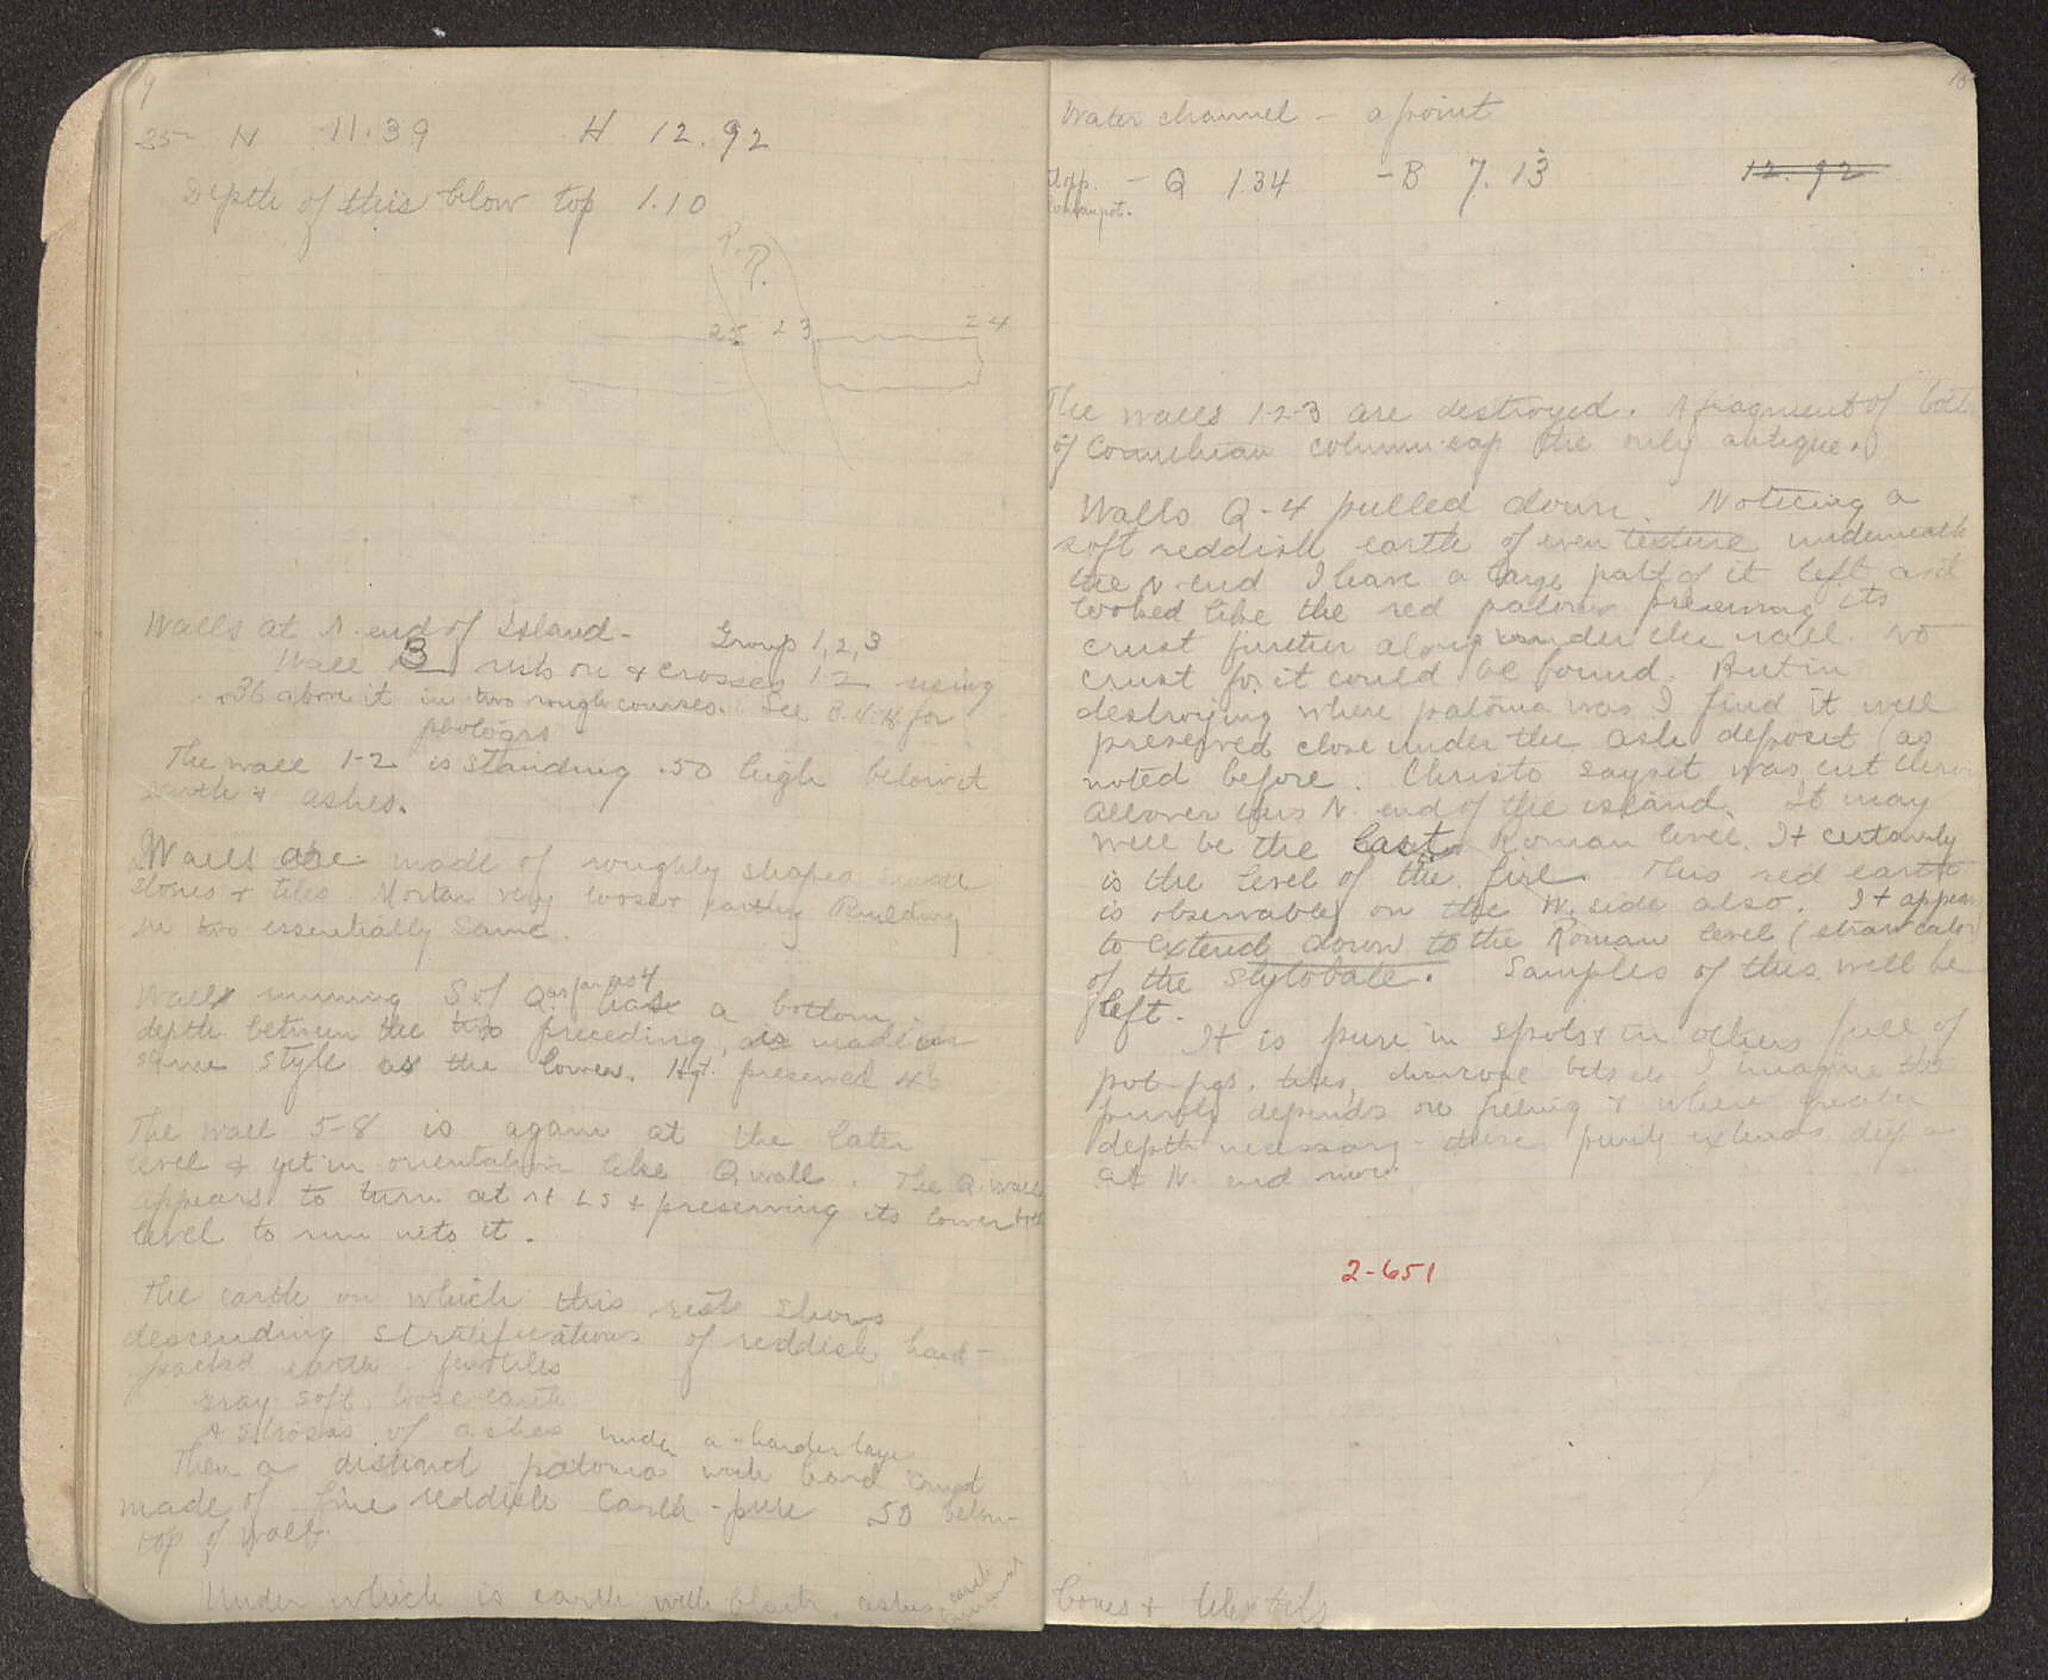 9
25 - N 11.39 H 12.92
Depth of this below top 1.10
R.R.
25 23 24
Walls at N. end of Island - Group 1, 2, 3
Wall 3 rests on & crosses 1-2 using
.36 above it in two rough courses. See for
photogrs
The wall 1-2 is standing .50 high below it
earth & ashes.
Walls are made of roughly shaped small
stones & tiles. Mortar very loose & earthy Building
in two essentially same.
Wall running S of Q as far as 4 has a bottom
depth between the two preceding, is made in
same style as the lower. Hgt. preserved
The wall 5-8 is again at the later
level & yet in orientation like Q wall. The Q. wall
appears to turn at rt ∠s & preserving its lower
level to run into it.
The earth on which this rests shows
descending stratifications of reddish hard-
packed earth. few tiles
gray soft, loose earth
of ashes under a harder layer
Then a distinct patoma with hard crust
made of fine reddish earth - pure .50 below
top of wall.
Under which is earth with black, ashes, earth
Water channel - a point
- Q 1.34 - B 7.13 12.92
The walls 1-2-3 are destroyed. A fragment of
of Corinthian column cap the only antique.
Walls Q-4 pulled down. Noticing a
soft reddish earth of even texture underneath
the N. end I leave a large part of it left as it
looked like the red patoma preserving its
crust further along under the wall. No
crust for it could be found. But in
destroying where patoma was I find it well
preserved close under the ash deposit (as
noted before. Christo says it was cut thru
all over this N. end of the island. It may
well be the last Roman level. It certainly
is the level of the fire. This red earth
is observable on the W. side also. It appears
to extend down to the Roman level (straw color)
of the stylobate. Samples of this will be
left.
It is pure in spots & in others full of
pot-fgs. tiles, charcoal bits etc I imagine the
purity depends on filling & where greater
depth necessary - there purity extends deep
at N. end more
2-651
bones & tile bits